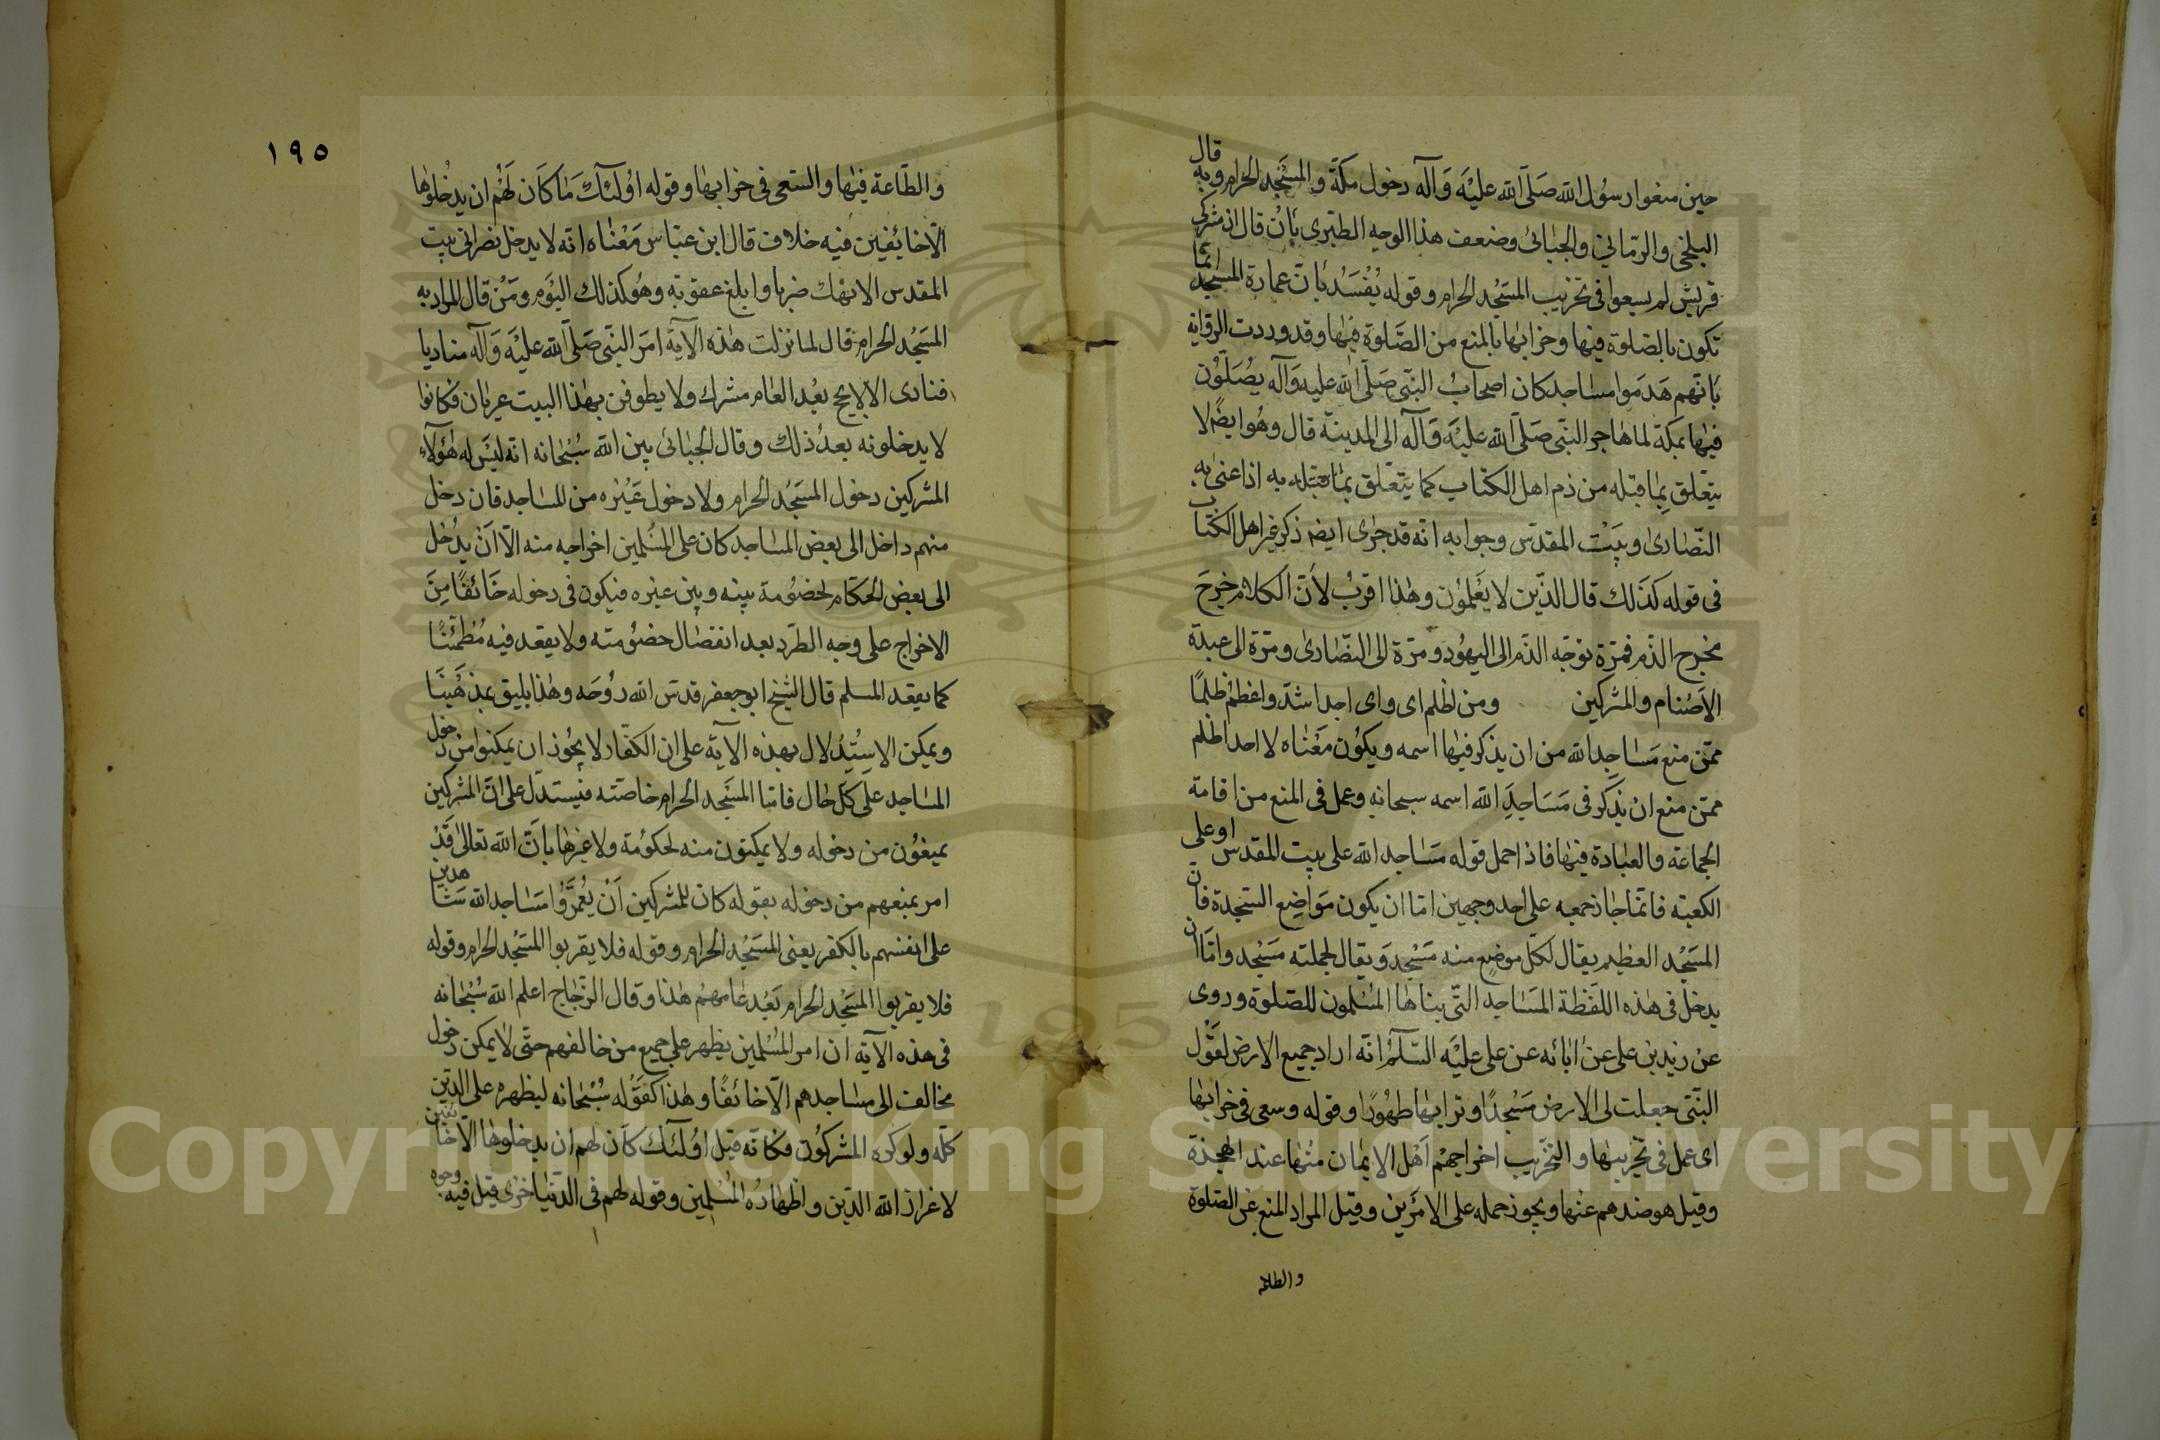 حين منعوا رسول الله صلى الله عليه وآله دخول مكة والمسجد الحرام وبه قال
البلخي والرماني والجبائي وضعف هذا الوجه الطبري بأن قال ان مشركي
قريش لم يسعوا في تخريب المسجد الحرام وقوله يفسد بأن عمارة المسجد انما
تكون بالصلوة فيها وخرابها بالمنع من الصلوة فيها وقد وردت الرواية
بانهم هدموا مساجد كان اصحاب النبي صلى الله عليه وآله يصلون
فيها بمكة لما هاجر النبي صلى الله عليه وآله الى المدينة قال وهو ايضا لا
يتعلق بما قبله من ذم اهل الكتاب كما يتعلق بما قبله به اذا عنى به
النصارى وبيت المقدس وجوابه انه قد جرى ايضا ذكر غير اهل الكتاب
في قوله كذلك قال الذين لا يعلمون وهذا اقرب لأن الكلام خرج
مخرج الذم فمرة توجه الذم الى اليهود ومرة الى النصارى ومرة الى عبدة
الاصنام والمشركين ومن اظلم اى واى احد اشد واعظم ظلما
ممن منع مساجد الله من ان يذكر فيها اسمه ويكون معناه لا احد اظلم
ممن منع ان يذكر في مساجد الله اسمه سبحانه وعمل في المنع من اقامة
الجماعة والعبادة فيها فاذا حمل قوله مساجد الله على بيت المقدس او على
الكعبة فانما جاز جمعه على احد وجهين اما ان يكون مواضع السجدة فان
المسجد العظيم يقال لكل موضع منه مسجد ويقال لجملته مسجد واما ان
يدخل في هذه اللفظة المساجد التي بناها المسلمون للصلوة وروى
عن زيد بن علي عن ابائه عن علي عليه السلام انه اراد جميع الارض لقول
النبي جعلت لي الارض مسجدا وترابها طهورا وقوله وسعى في خرابها
اى عمل في تخريبها والتخريب اخراجهم اهل الايمان منها عند الهجرة
وقيل هو صدهم عنها ويجوز حمله على الامرين وقيل المراد المنع عن الصلوة
والطاعة
١٩٥
والطاعة فيها والسعي في خرابها وقوله اولئك ما كان لهم ان يدخلوها
الا خائفين فيه خلاف قال ابن عباس معناه انه لا يدخل نصراني بيت
المقدس الا نهك ضربا وابلغ عقوبة وهو كذلك اليوم ومن قال المراد به
المسجد الحرام قال لما نزلت هذه الآية امر النبي صلى الله عليه وآله مناديا
فنادى الا لا يحج بعد العام مشرك ولا يطوفن بهذا البيت عريان فكانوا
لا يدخلونه بعد ذلك وقال الجبائي بين الله سبحانه انه ليس له هؤلاء
المشركين دخول المسجد الحرام ولا دخول غيره من المساجد فان دخل
منهم داخل الى بعض المساجد كان على المسلمين اخراجه منه الا ان يدخل
الى بعض الحكام لخصومة بينه وبين غيره فيكون في دخوله خائفا من
الاخراج على وجه الطرد بعد انفصال خصومته ولا يقعد فيه مطمئنا
كما يقعد المسلم قال الشيخ ابو جعفر قدس الله روحه وهذا يليق بمذهبنا
ويمكن الاستدلال بهذه الآية على ان الكفار لا يجوز ان يمكنوا من دخول
المساجد على كل حال فاما المسجد الحرام خاصته فيستدل على ان المشركين
يمنعون من دخوله ولا يمكنون منه لحكومة ولا غيرها بان الله تعالى قد
امر بمنعهم من دخوله بقوله كان للمشركين ان يعمروا مساجد الله شاهدين
على انفسهم بالكفر يعني المسجد الحرام وقوله فلا يقربوا المسجد الحرام وقوله
فلا يقربوا المسجد الحرام بعد عامهم هذا وقال الزجاج اعلم الله سبحانه
في هذه الآية ان امر المسلمين يظهر على جميع من خالفهم حتى لا يمكن دخول
مخالف الى مساجدهم الا خائفا وهذا كقوله سبحانه ليظهره على الدين
كله ولو كره المشركون فكانه قيل اولئك كان لهم ان يدخلوها الا خائفين
لاعزاز الله الدين واظهاره المسلمين وقوله لهم في الدنيا خزى قيل فيه وجوه